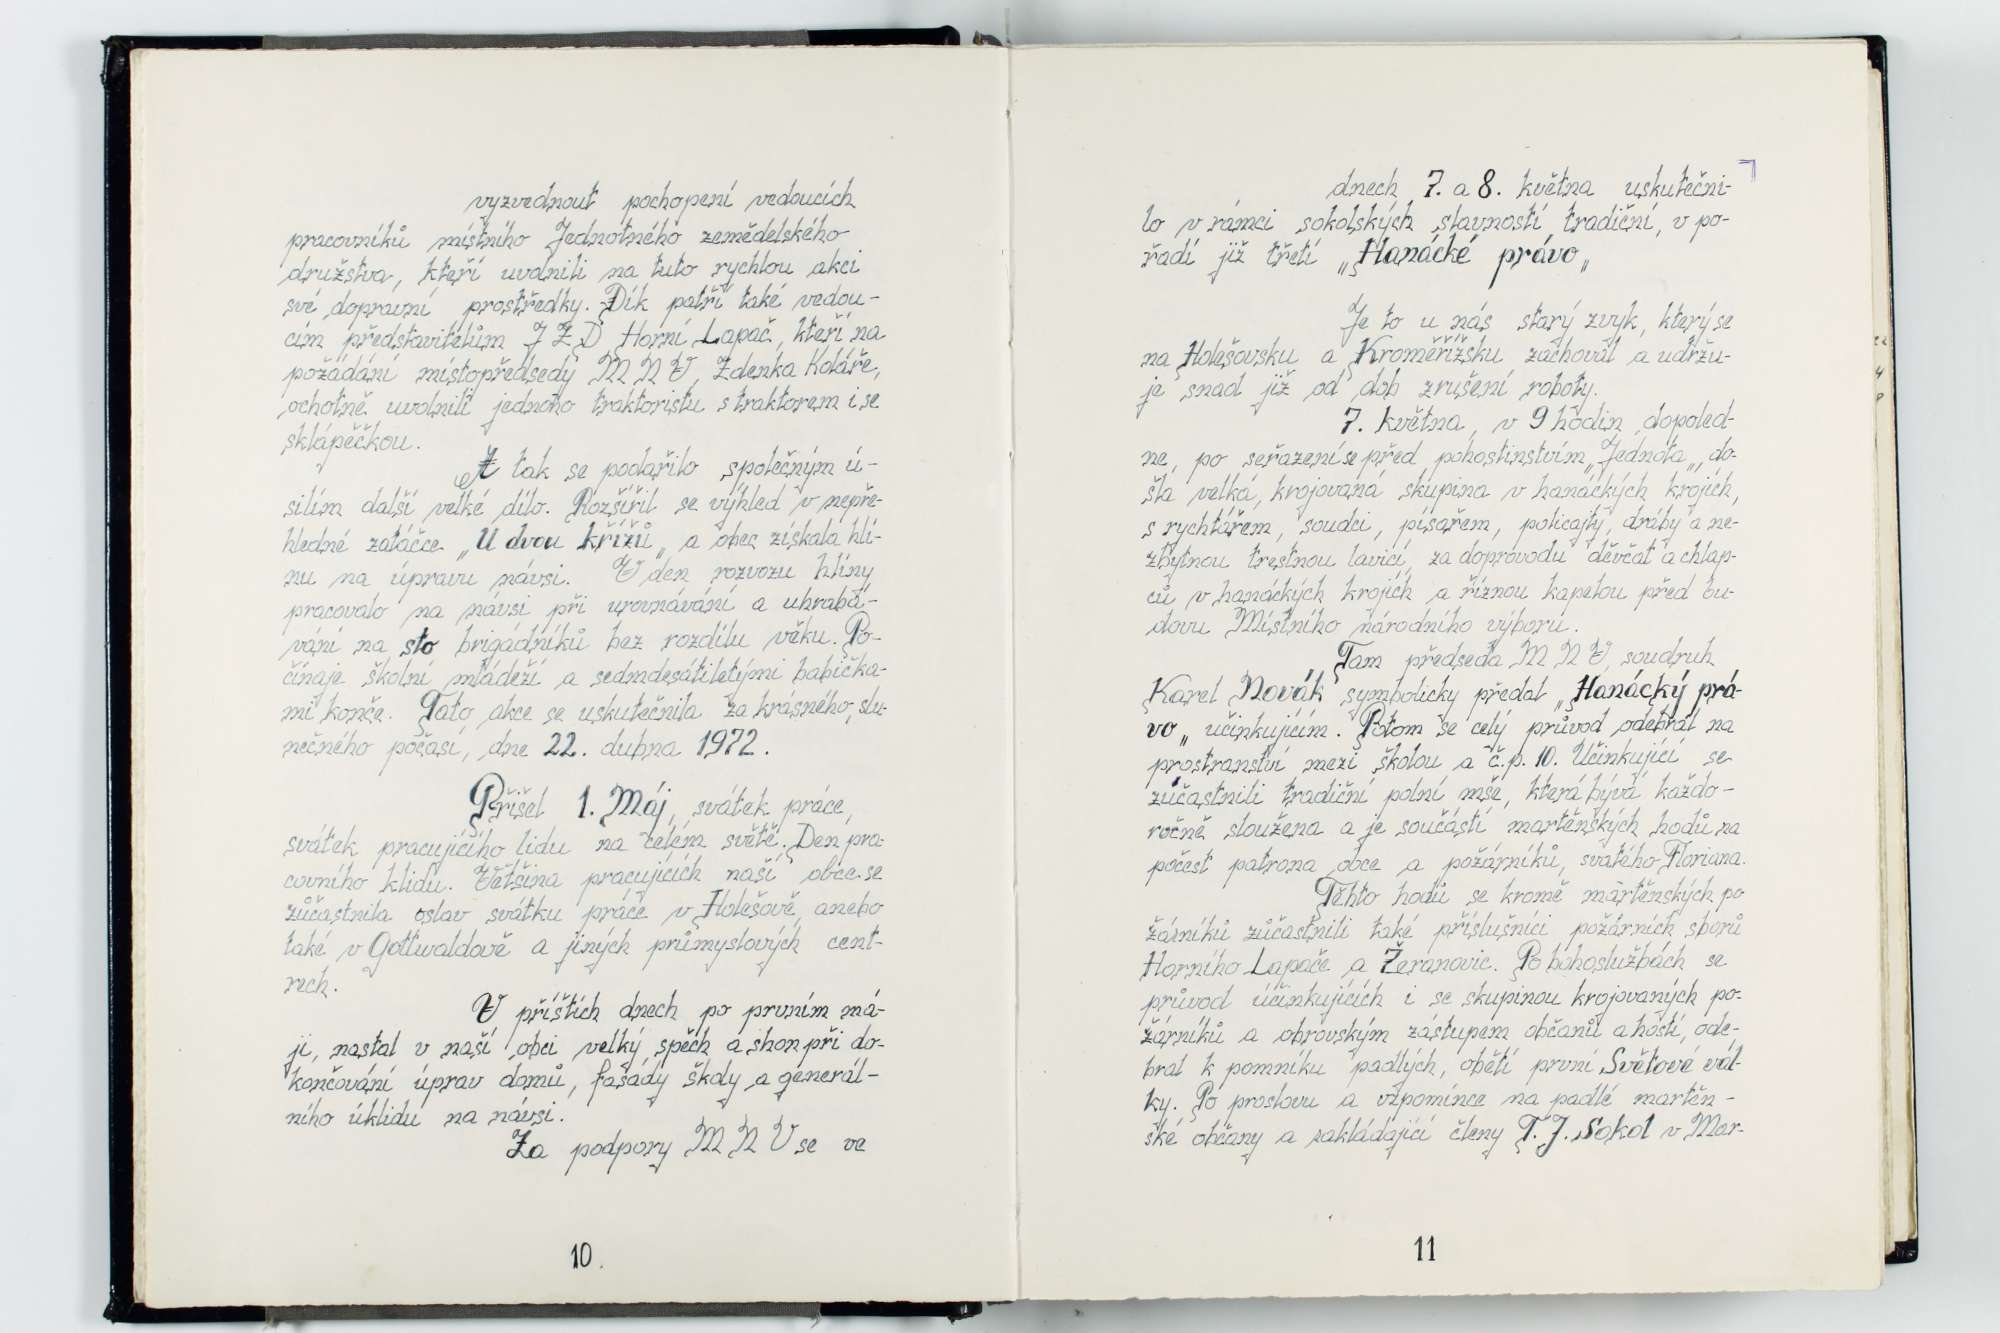 vyzvednout pochopení vedoucích
pracovníků místního Jednotného zemědelského
družstva, kteří uvolnili na tuto rychlou akci
své dopravní prostředky. Dík patří také vedou-
cím představitelům J Z D Horní Lapač, kteří na
požádání místopředsedy M N V, Zdenka Koláře,
ochotně uvolnili jednoho traktoristu s traktorem i se
sklápěčkou.
A tak se podařilo společným ú-
silím další velké dílo. Rozšířil se výhled v nepře-
hledné zatáčce „U dvou křížů„ a obec získala hlí-
nu na úpravu návsi. V den rozvozu hlíny
pracovalo na návsi při urovnávání a uhrabá-
vání na sto brigádníků bez rozdílu věku. Po-
čínaje školní mládeží a sedmdesátiletými babička-
mi konče. Tato akce se uskutečnila za krásného, slu-
nečného počasí, dne 22. dubna 1972.
Přišel 1. Máj, svátek práce,
svátek pracujícího lidu na celém světě. Den pra-
covního klidu. Většina pracujících naší obce se
zůčastnila oslav svátku práce v Holešově, anebo
také v Gottwaldově a jiných průmyslových cent-
rech.
V příštích dnech po prvním má-
ji, nastal v naší obci velký spěch a shon při do-
končování úprav domů, fasády školy a generál-
ního úklidu na návsi.
Za podpory M N V se ve
10.
dnech 7. a 8. května uskutečni-
lo v rámci sokolských slavností tradiční, v po-
řadí již třetí „Hanácké právo„
Je to u nás starý zvyk, který se
na Holešovsku a Kroměřížsku zachoval a udržu-
je snad již od dob zrušení roboty.
7. května, v 9 hodin dopoled-
ne, po seřazení se před pohostinstvím „Jednota„, do-
šla velká, krojovaná skupina v hanáckých krojích,
s rychtářem, soudci, písařem, policajty, dráby a ne-
zbytnou trestnou lavicí, za doprovodu děvčat a chlap-
ců v hanáckých krojích a říznou kapelou před bu-
dovu Místního národního výboru.
Tam předseda M N V, soudruh
Karel Novák symbolicky předal „Hanácký prá-
vo„ účinkujícím. Potom se celý průvod odebral na
prostranství mezi školou a č.p. 10. Účinkující se
zúčastnili tradiční polní mše, která bývá každo-
ročně sloužena a je součástí martěnských hodů na
počest patrona obce a požárníků, svatého Floriana.
Těhto hodů se kromě martěnských po
žárníků zůčastnili také příslušníci požárních sborů
Horního Lapače a Žeranovic. Po bohoslužbách se
průvod účinkujících i se skupinou krojovaných po-
žárníků a obrovským zástupem občanů a hostí, ode-
bral k pomníku padlých, obětí první Světové vál-
ky. Po proslovu a vzpomínce na padlé martěn-
ské občany a zakládající členy T. J. Sokol v Mar-
11